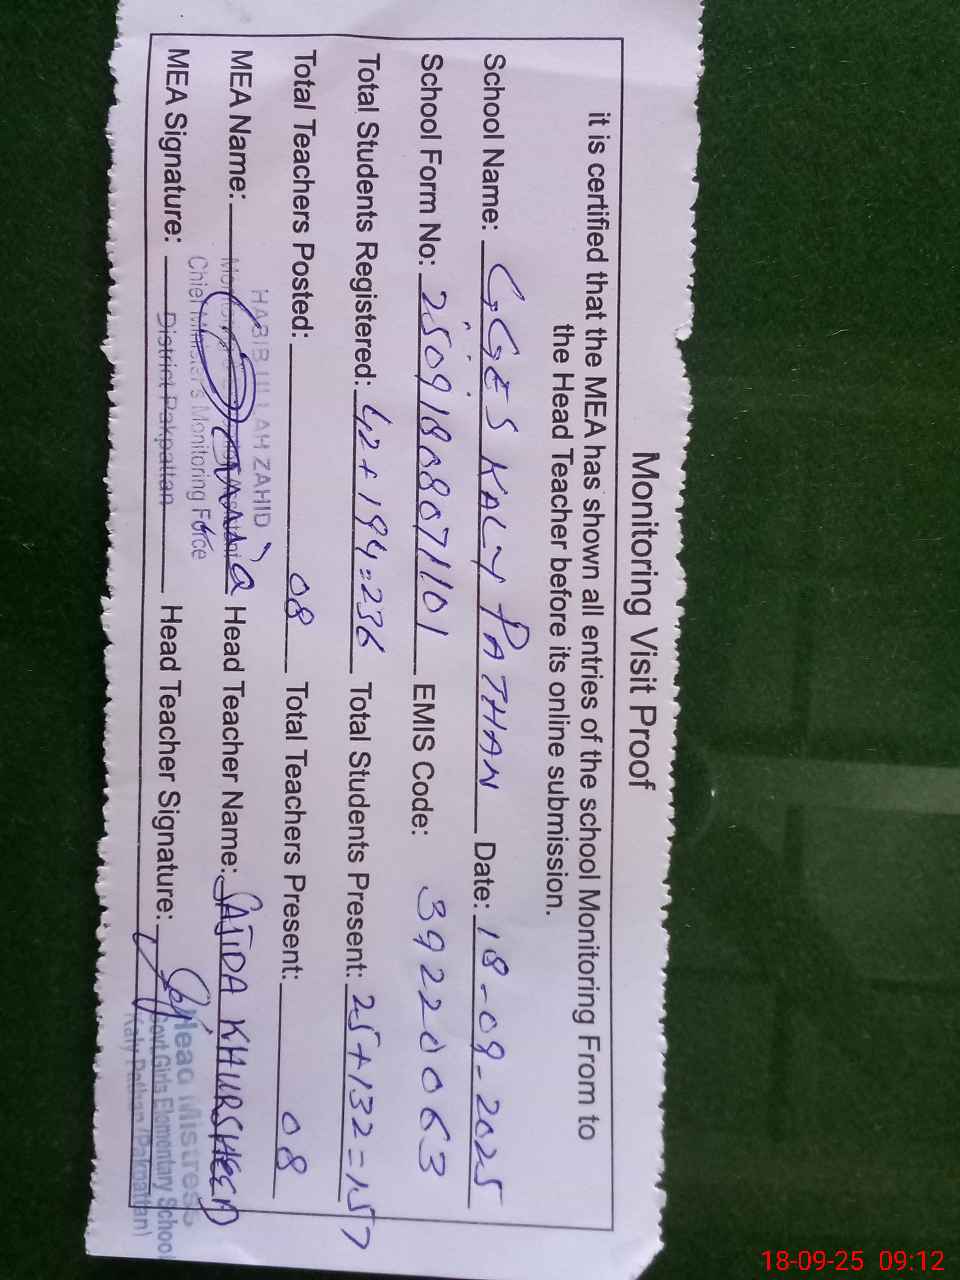 Monitoring Visit Proof
it is certified that the MEA has shown all entries of the school Monitoring From to
the Head Teacher before its online submission.
School Name: GGES KALY PATHAN Date: 18-09-2025
School Form No: 25091808071101 EMIS Code: 39220063
Total Students Registered: 42+194=236 Total Students Present: 25+132=157
Total Teachers Posted: 08 Total Teachers Present: 08
HABIB ULLAH ZAHID
MEA Name: Head Teacher Name: SAJIDA KHURSHEED
Chief Minister's Monitoring Force
MEA Signature: Head Teacher Signature:
District Pakpattan
Head Mistress
Govt Girls Elementary School
Kaly Pathan (Pakpattan)
18-09-25 09:12